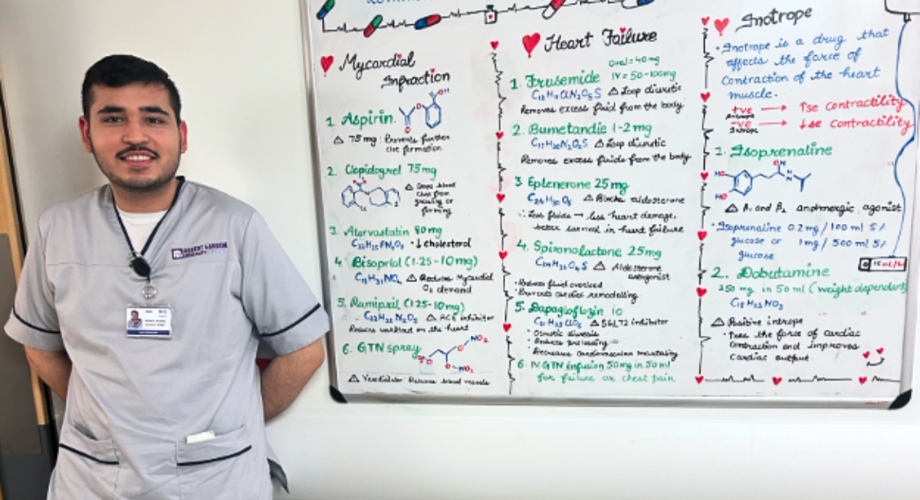 ROBERT GORDON
UNIVERSITY
Myocardial
Infraction
1. Aspirin.
OH
△ 75 mg: Prevents further
clot formation
2. Clopidogrel 75 mg
△ Stops blood
clots from
growing or
forming
3. Atorvastatin 80 mg
↓ cholesterol
4. Bisoprlol (1.25-10mg)
△ Reduces Myocardial
O₂ demand
5. Ramipril (1.25-10mg)
△ ACE inhibitor
Reduces workload on the heart
6. GTN spray
NO₂
NO₂
△ Vasodilator
Heart Failure
Oral = 40mg
IV = 50-100mg
1. Frusemide
△ Loop diuretic
Removes excess fluid from the body
2. Bumetanide 1-2 mg
△ Loop diuretic
Removes excess fluids from the body
3. Eplerenone 25mg
△ Blocks aldosterone
Less fluids → less heart damage,
better survival in heart failure
4. Spironolactone 25mg
△ Aldosterone
antagonist
Reduces fluid overload
Prevents cardiac remodelling
5. Dapagliflozin 10
△ SGLT2 inhibitor
• Osmotic diuresis
• Reduces preloading
• Decreases cardiovascular mortality
6. IV GTN infusion 50mg in 50ml
for failure or chest pain
Inotrope
• Inotrope is a drug that
affects the force of
contraction of the heart
muscle.
+ve Inotrope → ↑se contractility
-ve Inotrope → ↓se contractility
1. Isoprenaline
HO
HO
△ β₁ and β₂ andrenergic agonist
• Isoprenaline 0.2mg/100 ml 5%
glucose or 1mg/500 ml 5%
glucose
2. Dobutamine
250 mg in 50 ml (weight dependent)
C₁₈H₂₃NO₃
△ Positive inotrope
the force of cardiac
contraction and improves
cardiac output